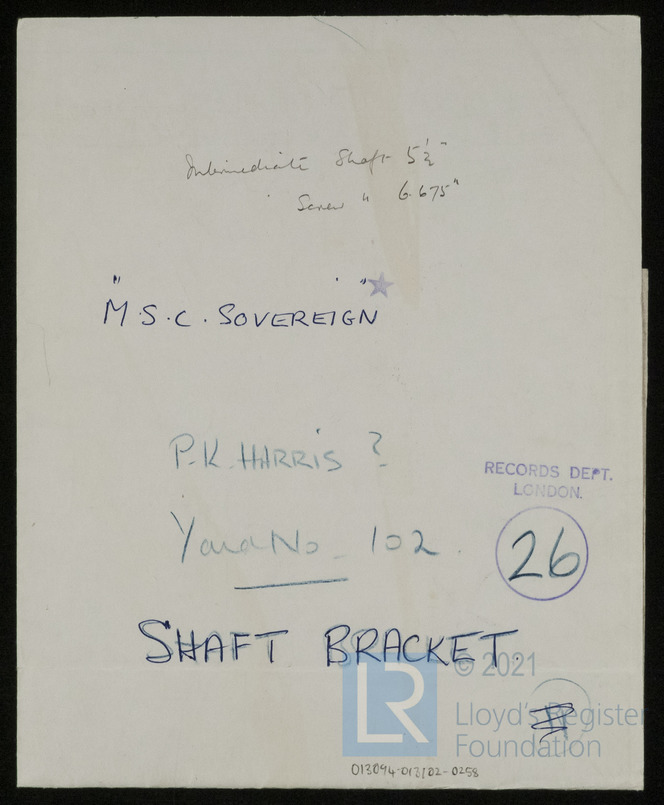 Intermediate Shaft 5½"
Screw " 6.675"
"M.S.C. SOVEREIGN"
P.K. HARRIS ?
Yard No 102.
RECORDS DEPT.
LONDON.
26
SHAFT BRACKET.
© 2021
LR
Lloyd's Register
Foundation
013094-013/02-0258